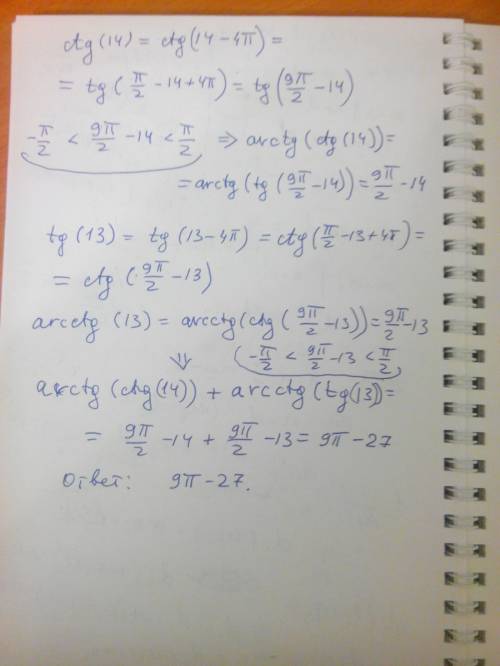 ctg(14) = ctg(14-4π) =
= tg(π/2 -14+4π) = tg(9π/2 -14)
-π/2 < 9π/2 -14 < π/2 ⇒ arctg(ctg(14))=
= arctg(tg(9π/2 -14)) = 9π/2 -14
tg(13) = tg(13-4π) = ctg(π/2 -13+4π) =
= ctg(9π/2 -13)
arcctg(13) = arcctg(ctg(9π/2 -13)) = 9π/2 -13
⇓ (-π/2 < 9π/2 -13 < π/2)
arctg(ctg(14)) + arcctg(tg(13)) =
= 9π/2 -14 + 9π/2 -13 = 9π-27
Ответ: 9π-27.